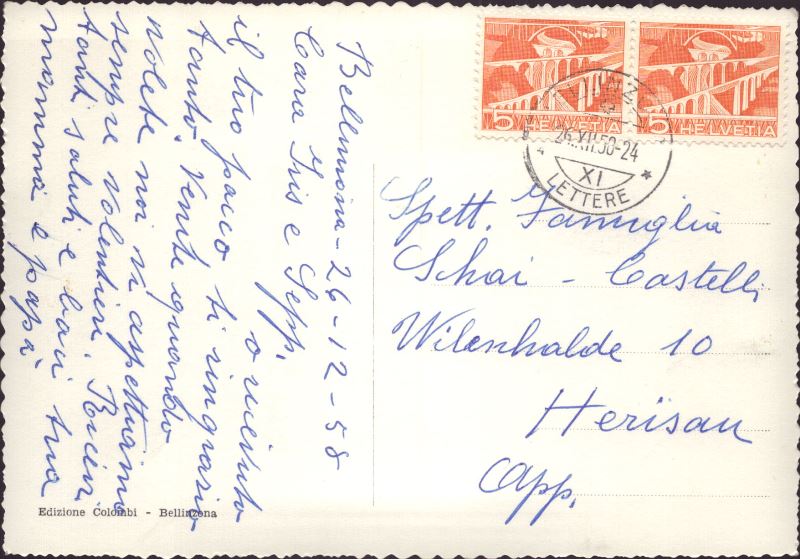 Bellinzona - 26-12-58
Cara Iris e Sepp,
o riceuto
il tuo pacco ti ringrasio
tanto. Venite quando
volete noi vi aspettiamo
sempre volentieri. Ricevi
tanti saluti e baci tua
mamma e papà
Edizione Colombi - Bellinzona
5 HELVETIA
5 HELVETIA
26.XII.58-24
XI
LETTERE
Spett. Famiglia
Schai - Castelli
Wilenhalde 10
Herisau
App.